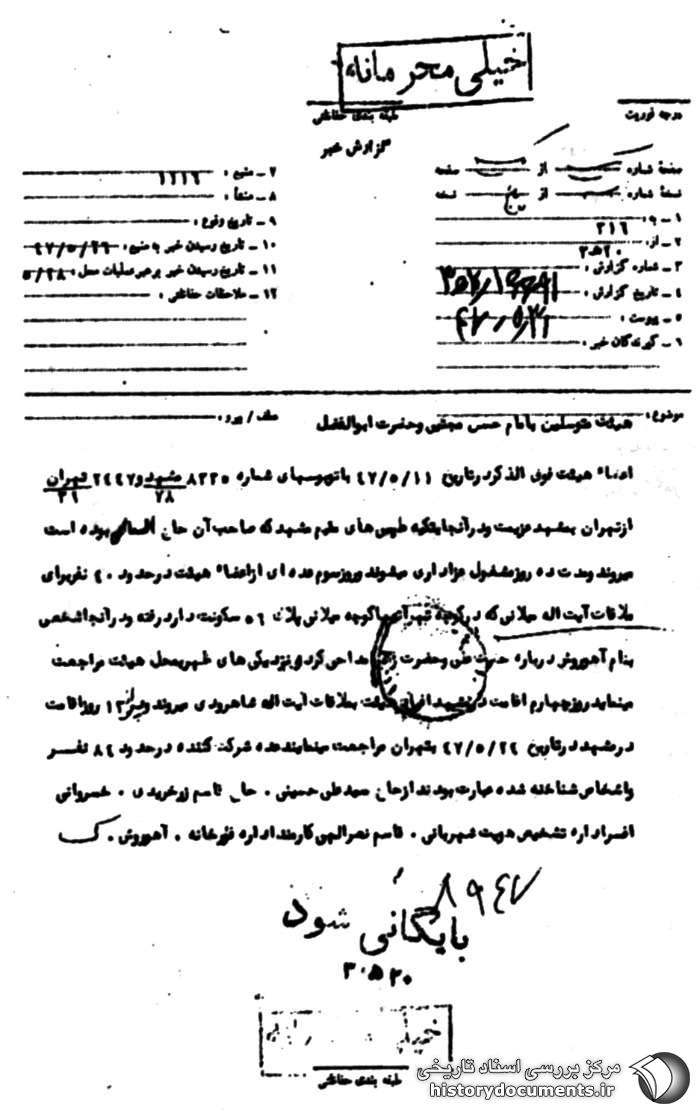 خیلی محرمانه
طبقه بندی حفاظتی
درجه فوریت
گزارش خبر
صفحه شماره از صفحه
نسخه شماره از نسخه
۱ - به:
۳۱۶
۲ - از:
۳۵۲۰
۳ - شماره گزارش:
۴ - تاریخ گزارش:
۵ - پیوست: ۴۷/۵/۳۱
۶ - گیرندگان خبر:
۷ - منبع: ۱۱۱۶
۸ - منشأ:
۹ - تاریخ وقوع:
۱۰ - تاریخ رسیدن خبر به منبع: ۴۷/۵/۲۶
۱۱ - تاریخ رسیدن خبر به رهبر عملیات محل: ۵/۲۸
۱۲ - ملاحظات حفاظتی:
موضوع: هیئت متوسلین بامام حسن مجتبی و حضرت ابوالفضل
عطف / پیرو:
اعضاء هیئت فوق الذکر در تاریخ ۴۷/۵/۱۱ با اتوبوسهای شماره ۸۳۳۵ مشهد ۲۸ و ۲۴۴۷ تهران ۳۹
از تهران بمشهد عزیمت و در آنجا بتکیه طبسی های مقیم مشهد که صاحب آن حاج بوده است
میروند و مدت ده روز مشغول عزاداری میشوند و روز سوم عده ای از اعضاء هیئت در حدود ۴۰ نفر برای
ملاقات آیت اله میلانی که در کوچه تهرانیها کوچه میلانی پلاک ۵۶ سکونت دارد رفته و در آنجا شخصی
بنام آهوروش درباره حضرت علی و حضرت مداحی کرد و نزدیکی های ظهر بمحل هیئت مراجعت
مینماید روز چهارم اقامت در مشهد افراد هیئت بملاقات آیت اله شاهرودی میروند و پس از ۱۳ روز اقامت
در مشهد در تاریخ ۴۷/۵/۲۴ بتهران مراجعت مینمایند عده شرکت کننده در حدود ۸۴ نفر
و اشخاص شناخته شده عبارت بودند از حاج سید علی حسینی . حاج قاسم زرخریدی . خسروانی
افسر اداره تشخیص هویت شهربانی . قاسم نصرالهی کارمند اداره قورخانه . آهوروش .
۸۹۴۷
بایگانی شود
۳۰۵۲۰
خیلی محرمانه
طبقه بندی حفاظتی
مرکز بررسی اسناد تاریخی
historydocuments.ir